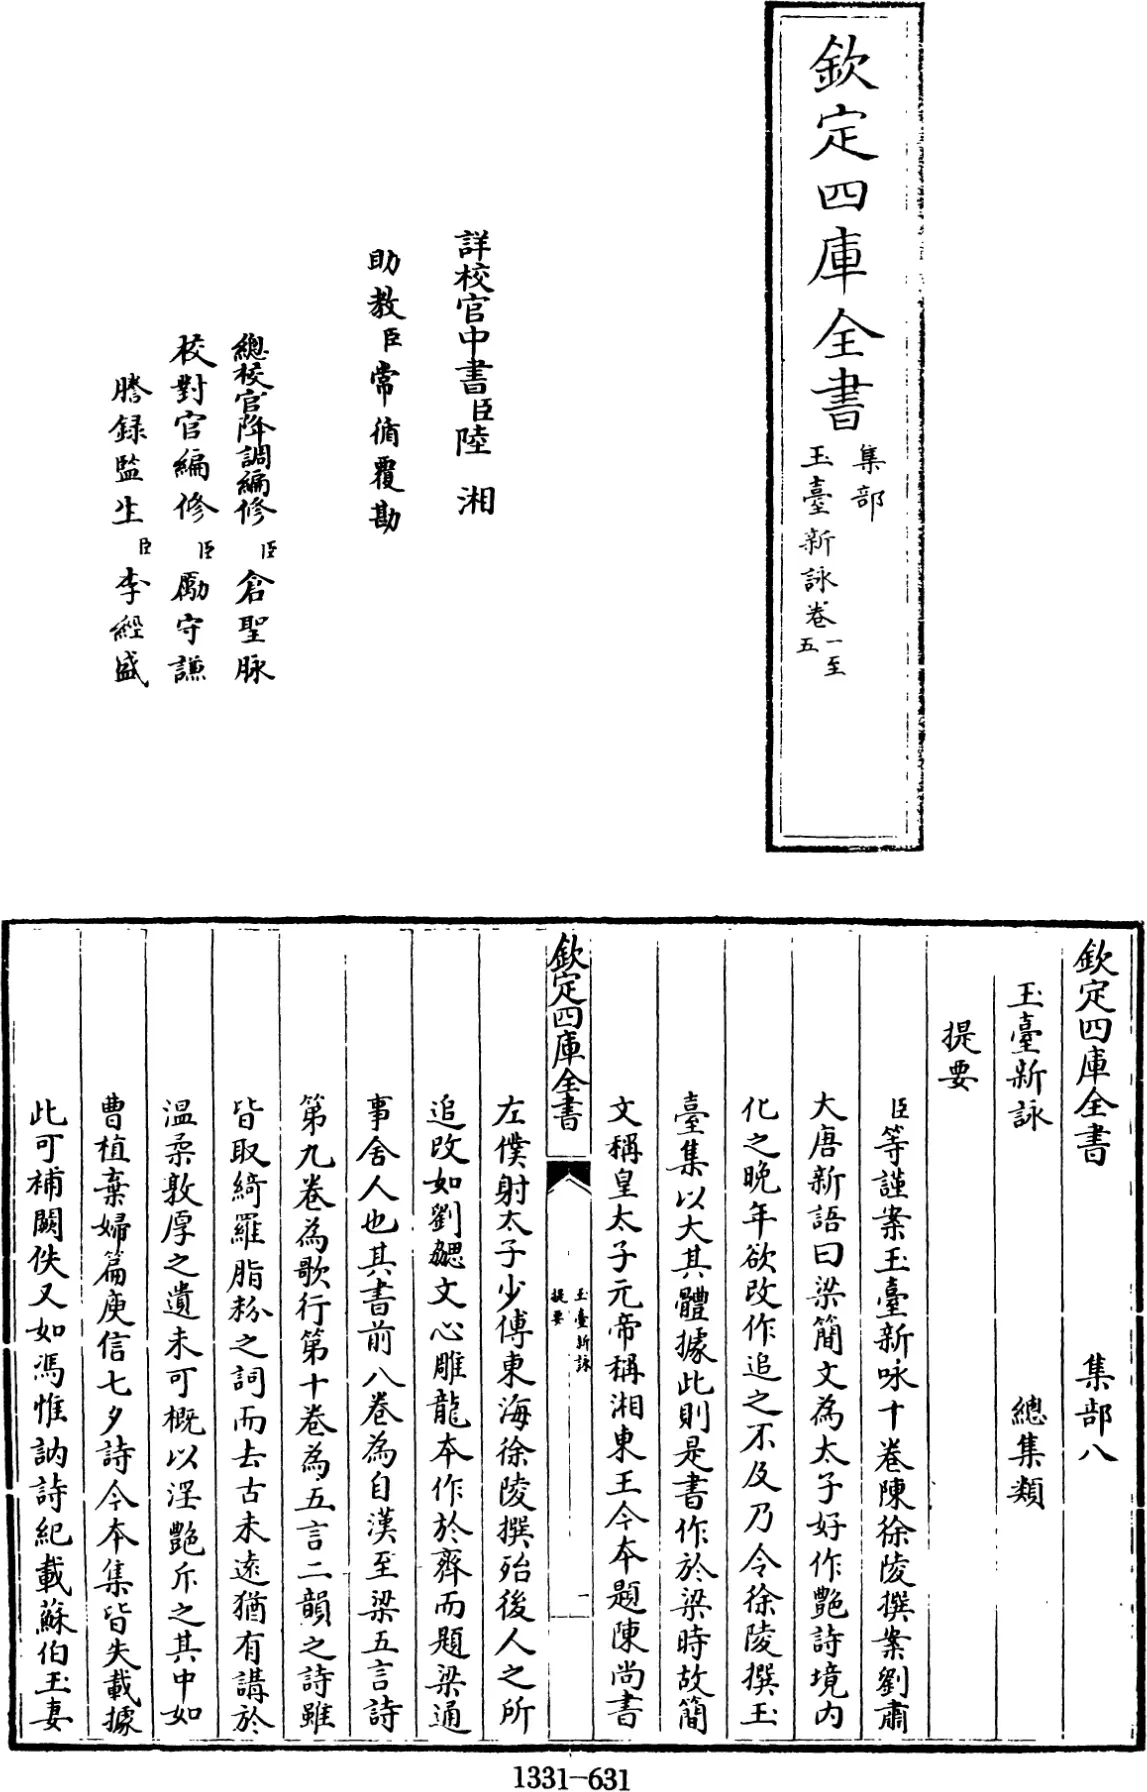 欽定四庫全書
集部
玉臺新詠卷一至五
詳校官中書臣陸湘
助教臣常循覆勘
總校官降調編修臣倉聖脉
校對官編修臣勵守謙
謄録監生臣李經盛
欽定四庫全書 集部八
玉臺新詠 總集類
提要
臣等謹案玉臺新咏十卷陳徐陵撰案劉肅
大唐新語曰梁簡文為太子好作艷詩境内
化之晚年欲改作追之不及乃令徐陵撰玉
臺集以大其體據此則是書作於梁時故簡
文稱皇太子元帝稱湘東王今本題陳尚書
欽定四庫全書
玉臺新詠
提要
一
左僕射太子少傅東海徐陵撰殆後人之所
追改如劉勰文心雕龍本作於齊而題梁通
事舍人也其書前八卷為自漢至梁五言詩
第九卷為歌行第十卷為五言二韻之詩雖
皆取綺羅脂粉之詞而去古未遠猶有講於
温柔敦厚之遺未可概以淫艷斥之其中如
曹植棄婦篇庾信七夕詩今本集皆失載據
此可補闕佚又如馮惟訥詩紀載蘇伯玉妻
1331-631